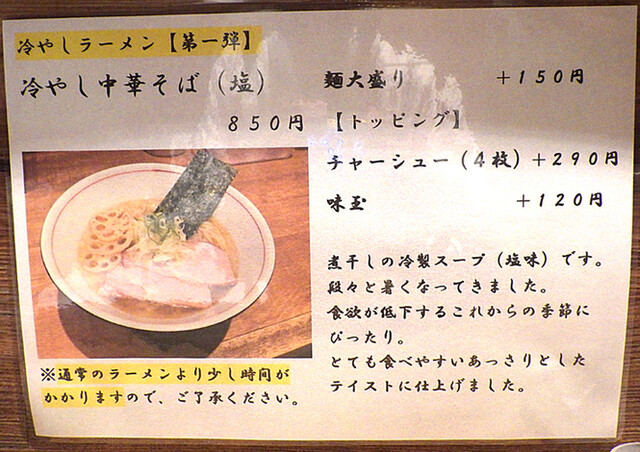 冷やしラーメン【第一弾】
冷やし中華そば（塩）
850円
※通常のラーメンより少し時間が
かかりますので、ご了承ください。
麺大盛り ＋150円
【トッピング】
チャーシュー（4枚）＋290円
味玉 ＋120円
煮干しの冷製スープ（塩味）です。
段々と暑くなってきました。
食欲が低下するこれからの季節に
ぴったり。
とても食べやすいあっさりとした
テイストに仕上げました。